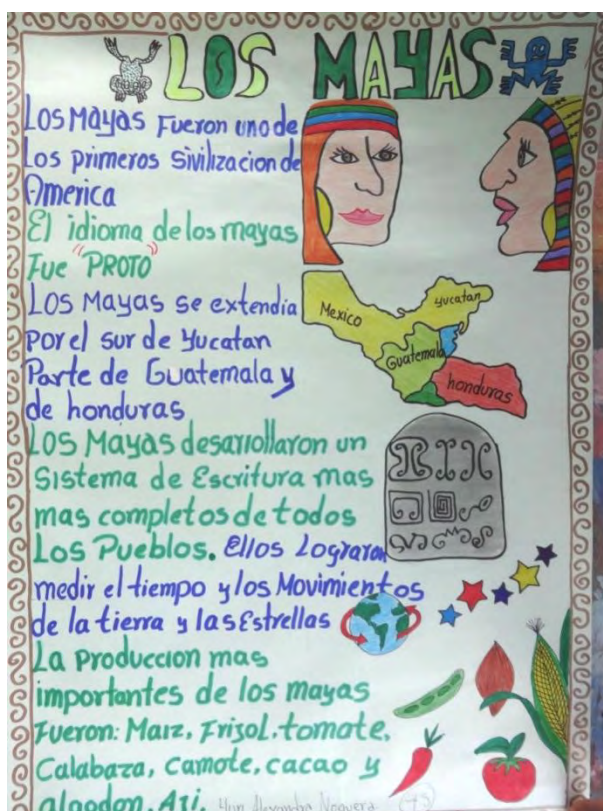 LOS MAYAS
Los Mayas Fueron uno de
Los primeros Sivilizacion de
America
El idioma de los mayas
Fue "PROTO"
Los Mayas se extendia
por el sur de Yucatan
Parte de Guatemala y
de honduras
Mexico
Yucatan
Guatemala
honduras
Los Mayas desarrollaron un
Sistema de Escritura mas
mas completos de todos
Los Pueblos. Ellos Lograron
medir el tiempo y los Movimientos
de la tierra y las Estrellas
La Produccion mas
importantes de los mayas
Fueron: Maiz, Frijol, tomate,
Calabaza, Camote, cacao y
algodon, Aji.
Noguera